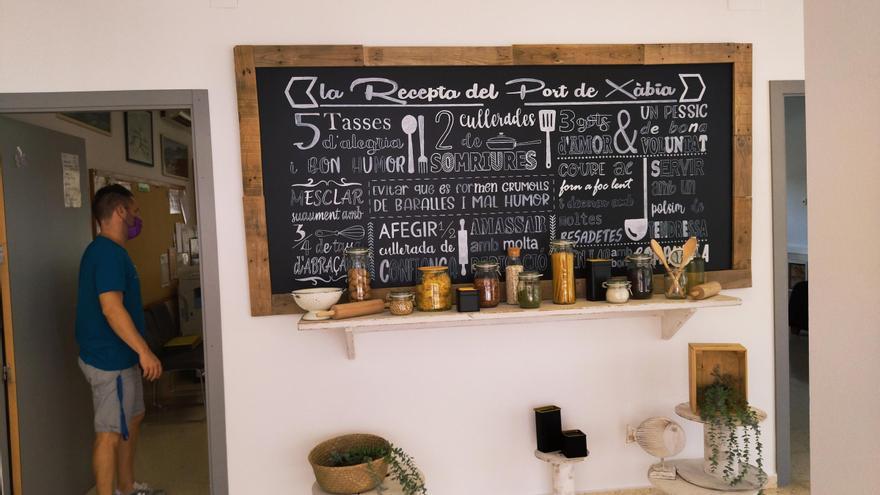 la Recepta del Port de Xàbia
5 Tasses
d'alegria
i BON HUMOR
2 culllerades
de
SOMRIURES
3 gots
d'AMOR
&
UN PESSIC
de bona
VOLUNTAT
MESCLAR
suaument amb
3
4 de tassa
d'ABRAÇA
Evitar que es formen GRUMOLLS
DE BARALLES I MAL HUMOR
AFEGIR 1/2
cullerada de
CONFIANÇA
AMASSAR
amb molta
COURE AL
forn a foc lent
i decorar amb
moltes
BESADETES
SERVIR
amb un
polsim
DE
ENDRESSA